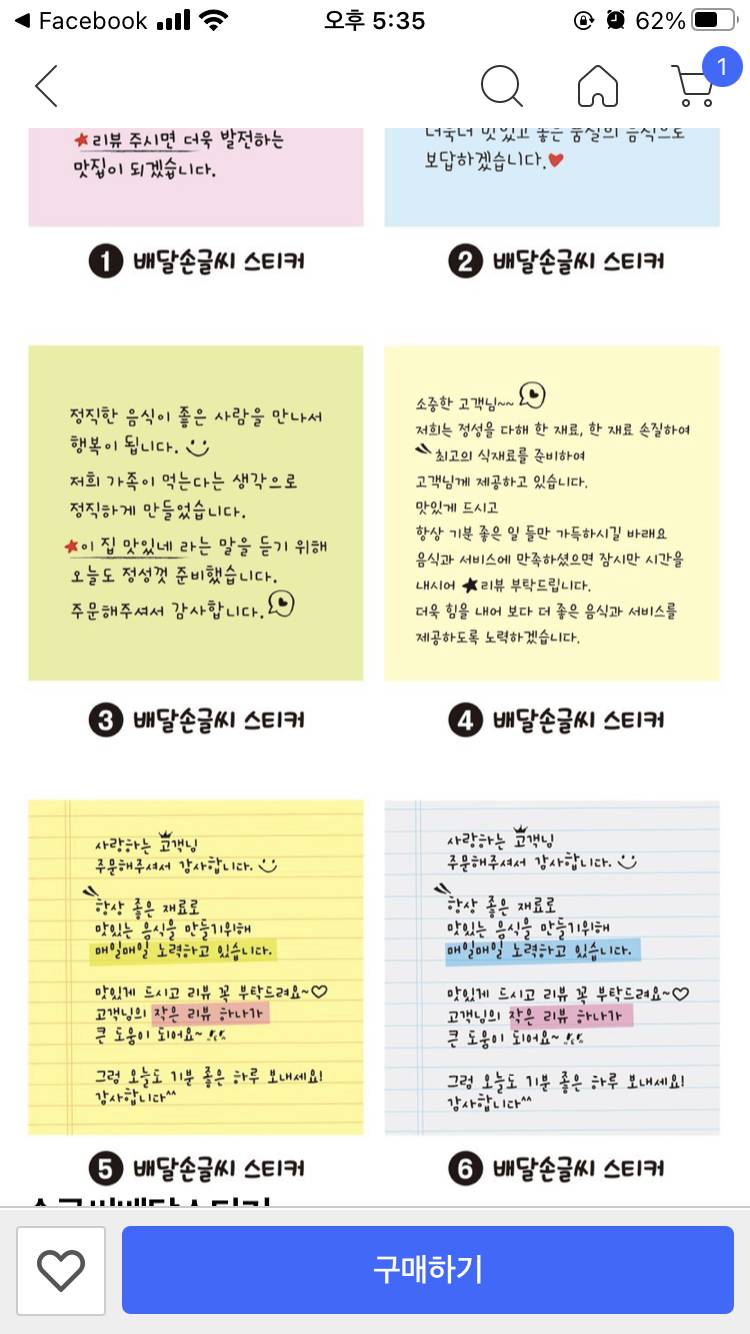 Facebook 오후 5:35 62%
1
★리뷰 주시면 더욱 발전하는
맛집이 되겠습니다.
더욱더 맛있고 좋은 품질의 음식으로
보답하겠습니다.♥
1 배달손글씨 스티커
2 배달손글씨 스티커
정직한 음식이 좋은 사람을 만나서
행복이 됩니다.
저희 가족이 먹는다는 생각으로
정직하게 만들었습니다.
★이 집 맛있네 라는 말을 듣기 위해
오늘도 정성껏 준비했습니다.
주문해주셔서 감사합니다.
소중한 고객님~~
저희는 정성을 다해 한 재료, 한 재료 손질하여
최고의 식재료를 준비하여
고객님께 제공하고 있습니다.
맛있게 드시고
항상 기분 좋은 일 들만 가득하시길 바래요
음식과 서비스에 만족하셨으면 잠시만 시간을
내시어 ★리뷰 부탁드립니다.
더욱 힘을 내어 보다 더 좋은 음식과 서비스를
제공하도록 노력하겠습니다.
3 배달손글씨 스티커
4 배달손글씨 스티커
사랑하는 고객님
주문해주셔서 감사합니다.
항상 좋은 재료로
맛있는 음식을 만들기위해
매일매일 노력하고 있습니다.
맛있게 드시고 리뷰 꼭 부탁드려요~♡
고객님의 작은 리뷰 하나가
큰 도움이 되어요~
그럼 오늘도 기분 좋은 하루 보내세요!
감사합니다^^
사랑하는 고객님
주문해주셔서 감사합니다.
항상 좋은 재료로
맛있는 음식을 만들기위해
매일매일 노력하고 있습니다.
맛있게 드시고 리뷰 꼭 부탁드려요~♡
고객님의 작은 리뷰 하나가
큰 도움이 되어요~
그럼 오늘도 기분 좋은 하루 보내세요!
감사합니다^^
5 배달손글씨 스티커
6 배달손글씨 스티커
구매하기